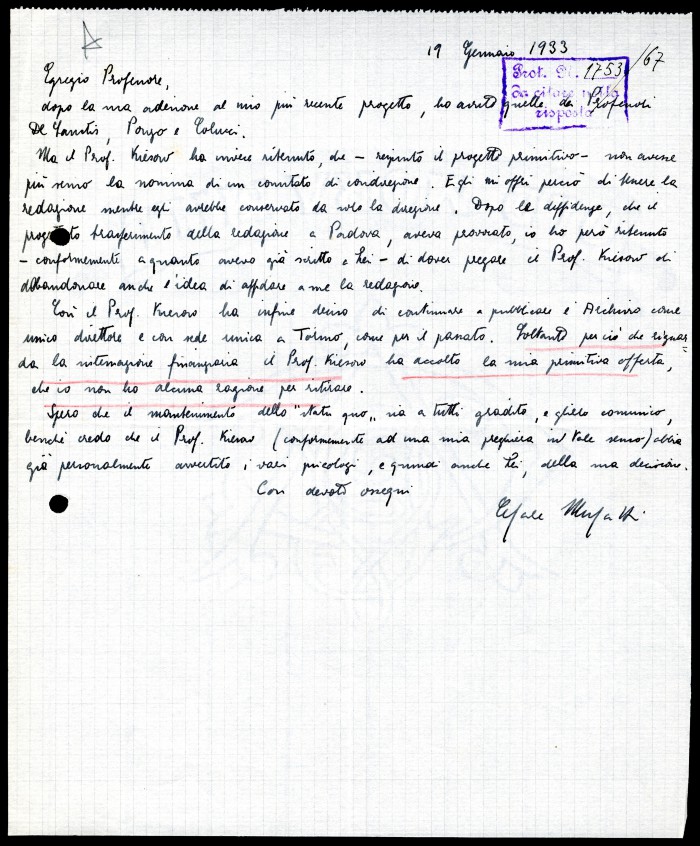 19 Gennaio 1933
Prot. N. 1753/67
da citare nella
risposta
Egregio Professore,
dopo la sua adesione al mio più recente progetto, ho avuto quelle dei Professori
De Sanctis, Ponzo e Colucci.
Ma il Prof. Kiesow ha invece ritenuto, che – respinto il progetto primitivo – non avesse
più senso la nomina di un comitato di condirezione. Egli mi offrì perciò di tenere la
redazione mentre egli avrebbe conservato da solo la direzione. Dopo le diffidenze, che il
progettato trasferimento della redazione a Padova, aveva provocato, io ho però ritenuto
– conformemente a quanto avevo già scritto a Lei – di dover pregare il Prof. Kiesow di
abbandonare anche l'idea di affidare a me la redazione.
Così il Prof. Kiesow ha infine deciso di continuare a pubblicare l'Archivio come
unico direttore e con sede unica a Torino, come per il passato. Soltanto per ciò che riguar-
da la sistemazione finanziaria il Prof. Kiesow ha accolto la mia primitiva offerta,
che io non ho alcuna ragione per ritirare.
Spero che il mantenimento dello "statu quo" sia a tutti gradito, e glielo comunico,
benché credo che il Prof. Kiesow (conformemente ad una mia preghiera in tale senso) abbia
già personalmente avvertito i vari psicologi, e quindi anche Lei, della sua decisione.
Con devoti ossequi
Cesare Musatti